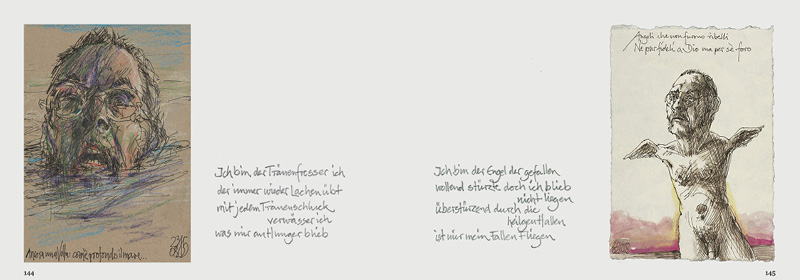 Ancora una Volta: com'è profondo il mare...
Ich bin der Tränenfresser ich
der immer wieder Lachen übt
mit jedem Tränenschluck
verwässer ich
was mir an Hunger blieb
144
Angeli che non furono ribelli
Ne pur fideli a Dio ma per sè foro
Ich bin der Engel der gefallen
wollend stürzte doch ich blieb
nicht liegen
überstürzend durch die
heilgen Hallen
ist mir mein Fallen Fliegen
145